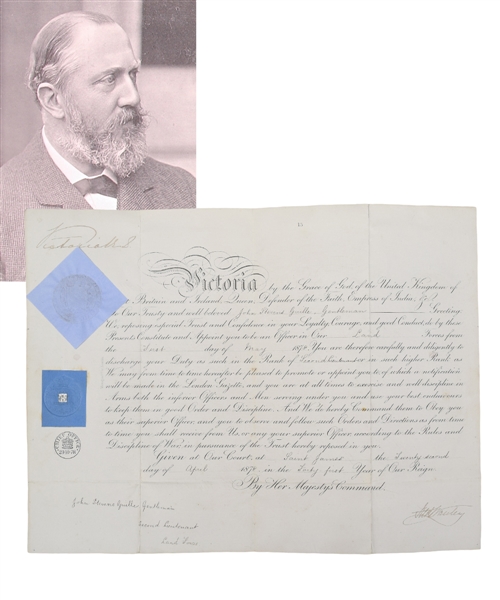 Victoria R I
Victoria by the Grace of God, of the United Kingdom of
Britain and Ireland, Queen, Defender of the Faith, Empress of India, &c.
To Our Trusty and well beloved John Gentleman Greeting
We, reposing especial Trust and Confidence in your Loyalty, Courage, and good Conduct, do by these
Presents Constitute and Appoint you to be an Officer in Our Land Forces from
the First day of May 1878. You are therefore carefully and diligently to
discharge your Duty as such in the Rank of Second Lieutenant or in such higher Rank as
We may from time to time hereafter be pleased to promote or appoint you to, of which a notification
will be made in the London Gazette, and you are at all times to exercise and well discipline in
Arms both the inferior Officers and Men serving under you and use your best endeavours
to keep them in good Order and Discipline. And We do hereby Command them to Obey you
as their superior Officer, and you to observe and follow such Orders and Directions as from time
to time you shall receive from Us, or any your superior Officer, according to the Rules and
Discipline of War, in pursuance of the Trust hereby reposed in you.
Given at Our Court, at Saint James's the Twenty second
day of April 1878, in the Forty first Year of Our Reign
By Her Majesty's Command.
John Gentleman
Second Lieutenant
Land Forces